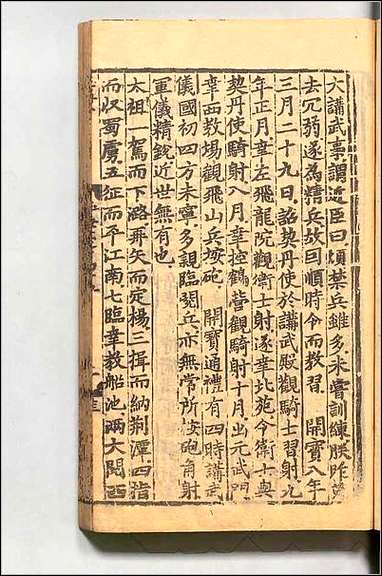 大講武事謂近臣曰頃禁兵雖多未嘗訓練朕昨
去冗弱遂為精兵故因順時令而教習　開寶八年
三月二十九日詔契丹使於講武殿觀騎士習射九
年正月幸左飛龍院觀衛士射遂幸北苑令衛士與
契丹使騎射八月幸控鶴營觀騎射十月出元武門
幸西教場觀飛山兵按砲　開寶通禮有四時講武
儀國初四方未寧多親臨閱兵亦無常所按砲角射
軍儀精銳近世無有也
太祖一駕而下潞再矢而定楊三揖而納荊潭四指
而収蜀虜五征而平江南七臨幸教船池兩大閱西